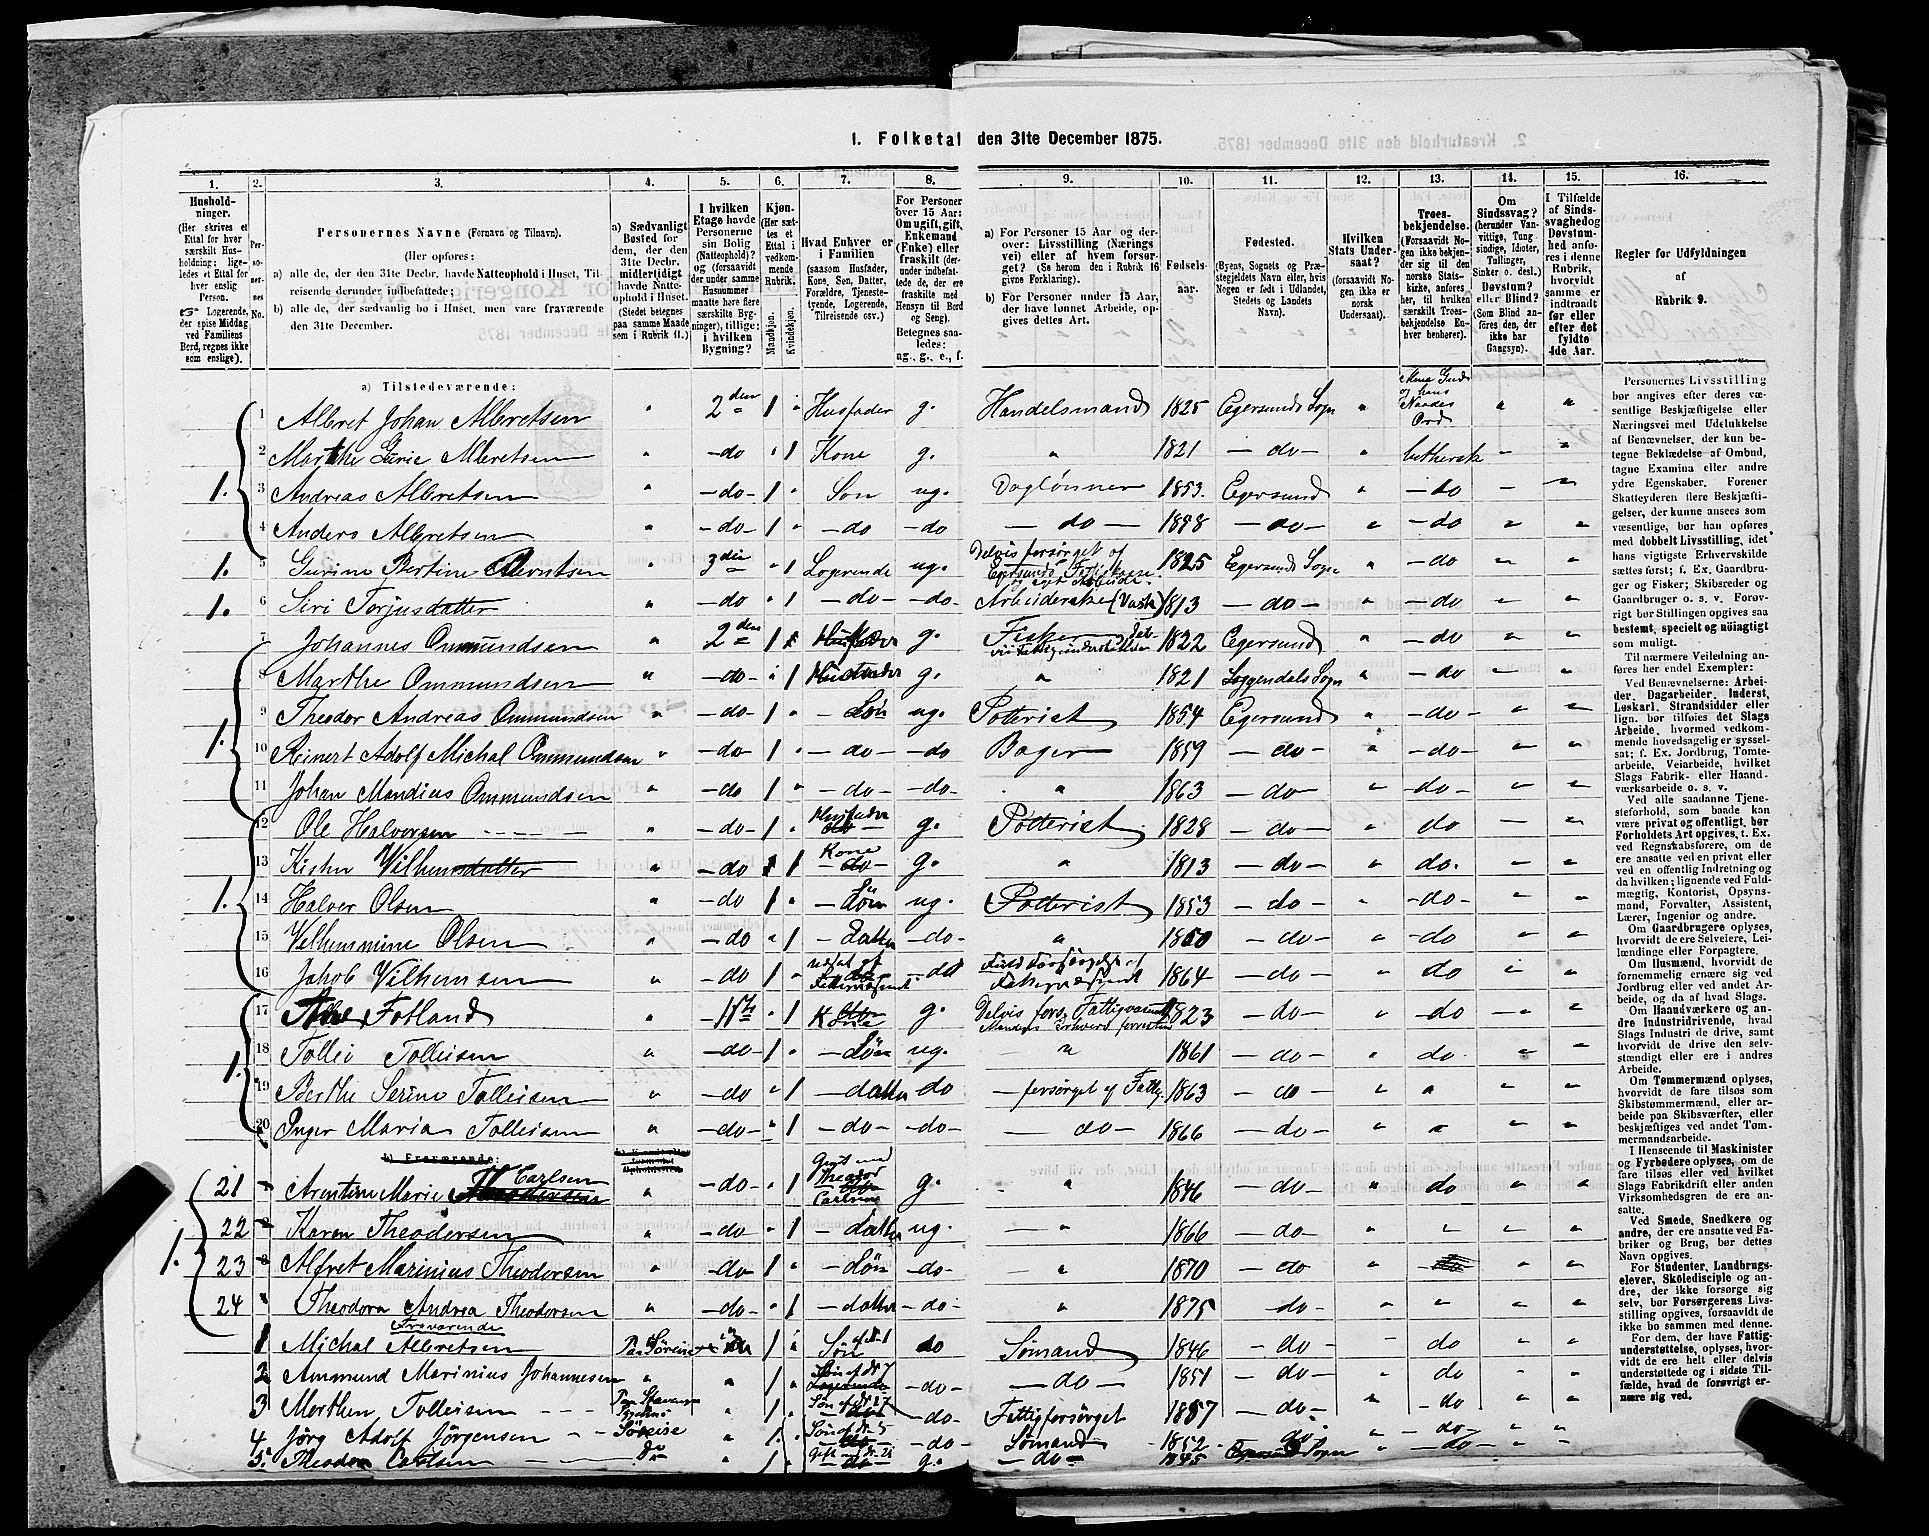 1. Folketal den 31te December 1875.
1. 2. 3. 4. 5. 6. 7. 8. 9. 10. 11. 12. 13. 14. 15. 16.
Hushold-
ninger.
(Her skrives et
Ettal for hver
særskilt Hus-
holdning; lige-
ledes et Ettal for
hver enslig
Person.
☞ Logerende,
der spise Middag
ved Familiens
Bord, regnes ikke
som enslige).
Per-
so-
ner-
nes
No.
Personernes Navne (Fornavn og Tilnavn).
(Her opføres:
a) alle de, der den 31te Decbr. havde Natteophold i Huset, Til-
reisende derunder indbefattede;
b) alle de, der sædvanlig bo i Huset, men vare fraværende
den 31te December.
a) Sædvanligt
Bosted for
dem, der den
31te Decbr.
midlertidigt
havde Natte-
ophold i Huset.
(Stedet betegnes
paa samme Maade
som i Rubrik 11.)
I hvilken
Etage havde
Personerne
sin Bolig
(Natteophold)?
og (forsaavidt
der under samme
Husnummer
maatte høre flere
særskilte Byg-
ninger), tillige:
i hvilken
Bygning?
Kjøn.
(Her sæt-
tes et
Ettal i
vedkom-
mende
Rubrik.)
Mandkjøn.
Kvindekjøn.
Hvad Enhver er
i Familien
(saasom Husfader,
Kone, Søn, Datter,
Forældre, Tjeneste-
tyende, Logerende,
Tilreisende osv.)
For Personer
over 15 Aar:
Om ugift, gift,
Enkemand
(Enke) eller
fraskilt (der-
under indbefat-
tede de, der ere
fraskilte med
Hensyn til Bord
og Seng).
Betegnes saa-
ledes:
ug., g., e., f.
a) For Personer 15 Aar og der-
over: Livsstilling (Nærings
vei) eller af hvem forsør-
get? (Se herom den i Rubrik 16
givne Forklaring).
b) For Personer under 15 Aar,
der have lønnet Arbeide, op-
gives dettes Art.
Fødsels-
aar.
Fødested.
(Byens, Sognets og Præ-
stegjeldets Navn eller, hvis
Nogen er født i Udlandet,
Stedets og Landets
Navn).
Hvilken
Stats Under-
saat?
(forsaavidt No-
gen ikke er
norsk
Undersaat).
Troes-
bekjendelse.
(Forsaavidt No-
gen ikke bekjen-
der sig til den
norske Stats-
kirke, anføres
her, til hvilken
særskilt Troes-
bekjendelse En-
hver henhører).
Om
Sindssvag?
(herunder Van-
vittige, Tung-
sindige, Idioter,
Tullinger,
Sinker o. desl.)
Døvstum?
eller Blind?
(Som Blind an-
føres den, der
ikke har
Gangsyn).
I Tilfælde
af Sinds-
svaghed og
Døvstum-
hed anfø-
res i denne
Rubrik,
hvorvidt
samme er
indtraadt
før eller
efter det
fyldte
4de Aar.
Regler for Udfyldningen
af
Rubrik 9.
a) Tilstedeværende:
1. 1 Albret Johan Albretsen " 2den 1 " Husfader g. Handelsmand 1825 Egersunds Sogn "
2 Marthe Gurie Albretsen " -do 1 Kone g. " 1821 -do- " luthersk
3 Andreas Albretsen " -do- 1 " Søn ug. Daglønner 1853. Egersund " -do
4 Anders Albretsen " -do- 1 " -do -do -do- 1858 -do- " -do
1. 5 Gurine Bertine " 3die " 1 Logerende ug. Delvis forsørget af 1825 Egersunds Sogn " -do
1. 6 Siri Torjusdatter " -do " 1 -do- -do- Arbeiderske (Vask) 1813 -do- " -do
1. 7 Johannes Ommundsen " 2den 1 g. Fisker 1822 Egersund " -do
8 Marthe Ommundsen " -do- 1 g. " 1821 Soggendals Sogn " -do
9 Theodor Andreas Ommundsen " -do- 1 " -Søn ug. Potterist 1854 Egersund " -do-
10 Reinert Adolf Michal Ommundsen " -do- 1 " -do- -do Bager 1859 -do- " -do-
11 Johan Mandius Ommundsen " -do 1 " -do- -do- " 1863 -do- " -do-
1. 12 Ole Halvorsen " -do- 1 " Husfader g. Potterist 1828 -do- " do
13 Vilhemsdatter " -do 1 Kone g. " 1813 -do- " do.
14 Halver Olsen " -do 1 " -Søn ug. Potterist 1853 -do- " -do-
15 Velhemmine Olsen " -do " 1 -datter -do- " 1850 -do- " -do
16 Jakob Vilhemsen " -do 1 " -do 1864 -do- " do
1. 17 Fotland " 1ste " 1 Kone g. Delvis fors. Fattigvæsen 1823 -do- " do
18 Tollei Tolleisen " -do- 1 " -Søn ug. " 1861 -do- " do
19 Berthe Serine Tolleisen " -do " 1 -datter do -forsørget af Fattig. 1863 -do " "
20 Inger Maria Tolleisen " -do- " 1 -do- -do- -do- 1866 -do- " "
b) Fraværende:
1. 21 Arentine Marie Carlsen " -do- " 1 Gift med Theodor Carlsen g. " 1846 -do- " do
22 Karen Theodorsen " -do " 1 -datter ug. -" 1866 -do- " "
23 Alfret Marinius Theodorsen " -do- 1 " -Søn -do- -" 1870 -do "
24 Theodora Andrea Theodorsen " -do- " 1 -datter -do- " 1875 -do- " "
Fraværende
1 Michal Albretsen 1 " Søn af No 1 do Sømand 1846 -do- do
2 Ammund Marinius Johannesen " " 1 " Søn af No 7 -do- -do- 1851 -do- do
3 Morthen Tolleisen -- - " 1 " Søn af No 17 -do- Fattigforsørget 1857 -do- " -do
4 Jørg Adolf Jørgensen - - Søreise " 1 Søn af No 5 -do- Sømand 1852 do " -do-
5. Theodor Carlsen Do " 1 Gift m No 21 g. -do- 1845 Sogn " -do-
Personernes Livsstilling
bør angives efter deres væ-
sentlige Beskjæftigelse eller
Næringsvei med Udelukkelse
af Benævnelser, der kun be-
tegne Beklædelse af Ombud,
tagne Examina eller andre
ydre Egenskaber. Forener
Skatteyderen flere Beskjæfti-
gelser, der kunne ansees som
væsentlige, bør han opføres
med dobbelt Livsstilling, idet
hans vigtigste Erhvervskilde
sættes først; f. Ex. Gaardbru-
ger og Fisker; Skibsreder og
Gaardbruger o. s. v. Forøv-
rigt bør Stillingen opgives saa
bestemt, specielt og nøiagtigt
som muligt.
Til nærmere Veiledning an-
føres her endel Exempler:
Ved Benævnelserne: Arbei-
der, Dagarbeider, Inderst,
Løskarl, Strandsidder eller
lign. bør tilføies det Slags
Arbeide, hvormed vedkom-
mende hovedsagelig er syssel-
sat; f. Ex. Jordbrug, Tomte-
arbeide, Veiarbeide, hvilket
Slags Fabrik- eller Haand-
værksarbeide o. s. v.
Ved alle saadanne Tjene-
steforhold, som baade kan
være privat og offentligt, bør
Forholdets Art opgives, t. Ex.
ved Regnskabsførere, om de
ere ansatte ved en privat eller
ved en offentlig Indretning og
da hvilken; lignende ved Fuld-
mægtig, Kontorist, Opsyns-
mand, Forvalter, Assistent,
Lærer, Ingeniør og andre.
Om Gaardbrugere oplyses,
hvorvidt de ere Selveiere, Lei-
lændinge eller Forpagtere.
Om Husmænd, hvorvidt de
fornemmelig ernære sig ved
Jordbrug eller ved andet Ar-
beide, og da af hvad Slags.
Om Haandværkere og an-
dre Industridrivende, hvad
Slags Industri de drive, samt
hvorvidt de drive den selv-
stændigt eller ere i andres
Arbeide.
Om Tømmermænd oplyses,
hvorvidt de fare tilsøs som
Skibstømmermænd, eller ar-
beide paa Skibsværfter, eller
beskjæftiges ved andet Tøm-
mermandsarbeide.
I Henseende til Maskinister
og Fyrbødere oplyses, om de
fare tilsøs eller ved hvilket
Slags Fabrikdrift eller anden
Virksomhedsgren de ere an-
satte.
Ved Smede, Snedkere og
andre, der ere ansatte ved Fa-
briker og Brug, bør dettes
Navn opgives.
For Studenter, Landbrugs-
elever, Skoledisciple og an-
dre, der ikke forsørge sig
selv, bør Forsørgerens Livs-
stilling opgives, forsaavidt de
ikke bo sammen med denne.
For dem, der have Fattig-
understøttelse, oplyses, hvor-
vidt de ere helt eller delvis
understøttede og i sidste Til-
fælde, hvad de forøvrigt er-
nære sig ved.